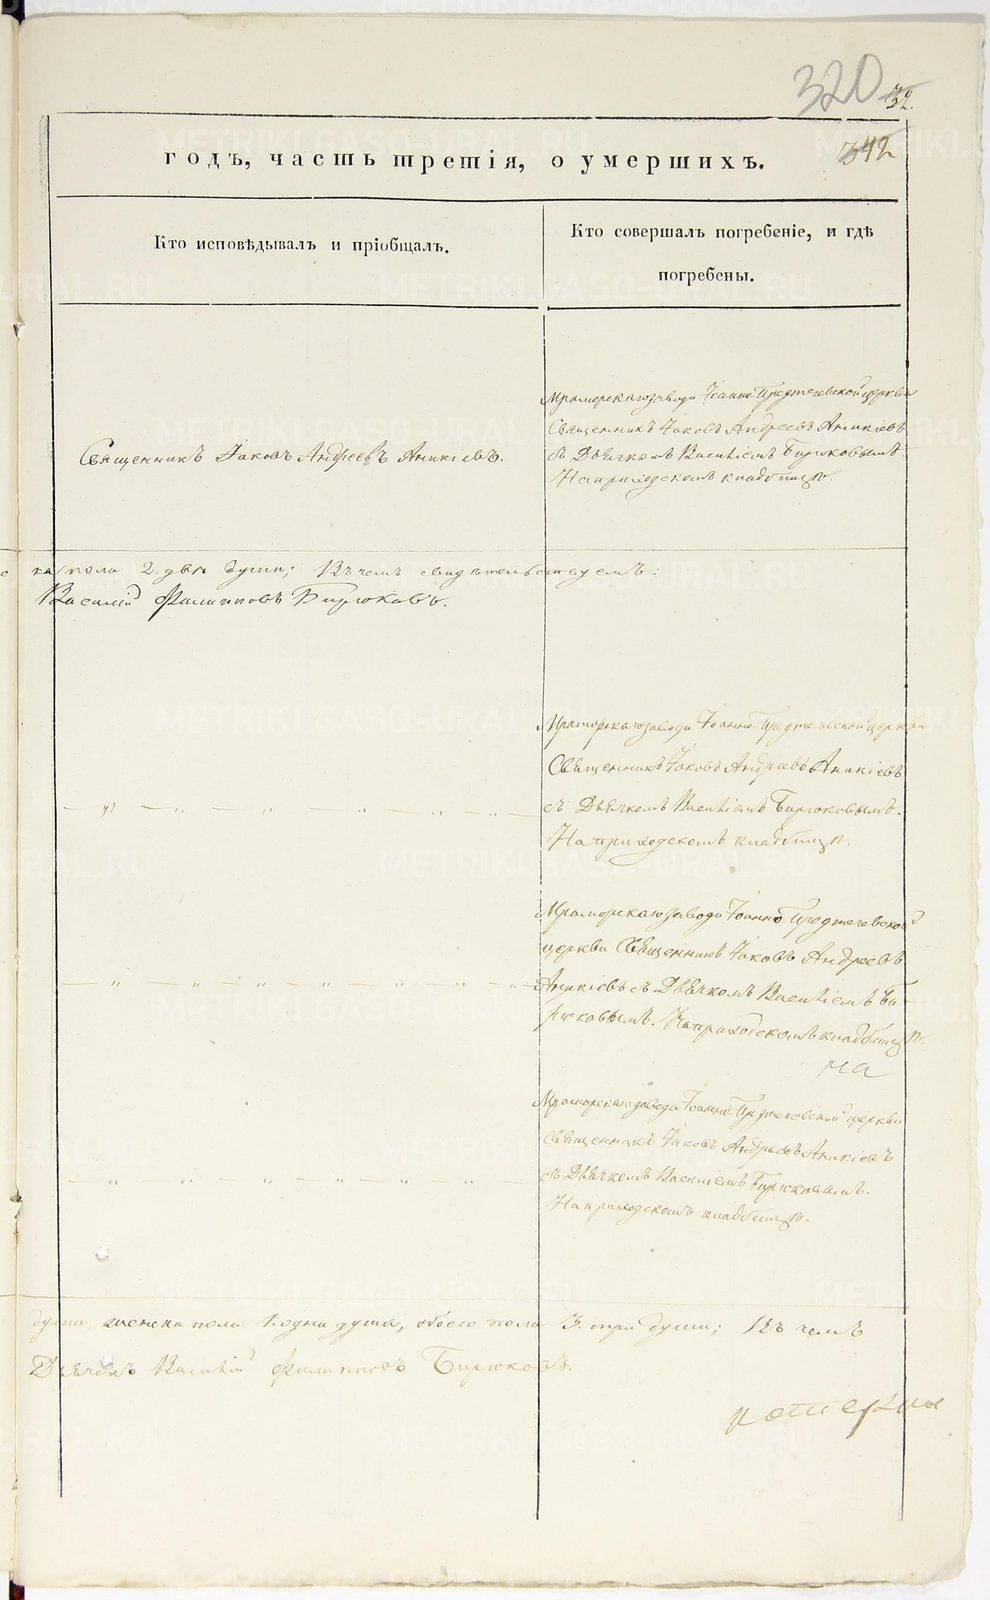 320 32.
342
годъ, часть третія, о умершихъ.
Кто исповѣдывалъ и пріобщалъ.
Кто совершалъ погребеніе, и гдѣ
погребены.
Мраморскаго завода Іоанно Предтечевской церкви
Священникъ Іаковъ Андреевъ Аникіевъ
съ Дьячкомъ Василіемъ Бирюковымъ.
На приходскомъ кладбищѣ.
Священникъ Іаковъ Андреевъ Аникіевъ.
ка/пола 2. двѣ души; Въ чемъ свидѣтельствуемъ:
Василій Филипповъ Бирюковъ.
Мраморскаго завода Іоанно Предтечевской церкви
Священникъ Іаковъ Андреевъ Аникіевъ
— „ — „ — „ — „ — „ — „ — съ Дьячкомъ Василіемъ Бирюковымъ.
На приходскомъ кладбищѣ.
Мраморскаго завода Іоанно Предтечевской
церкви Священникъ Іаковъ Андреевъ
— „ — „ — „ — „ — „ — „ — „ — Аникіевъ съ Дьячкомъ Василіемъ Би-
рюковымъ. На приходскомъ кладбищѣ.
на
Мраморскаго завода Іоанно Предтечевской церкви
Священникъ Іаковъ Андреевъ Аникіевъ
— „ — „ — „ — „ — „ — „ — съ Дьячкомъ Василіемъ Бирюковымъ.
На приходскомъ кладбищѣ.
души, женска пола 1. одна душа, обоего пола 3. три души; Въ чемъ
Дьячекъ Василій Филипповъ Бирюковъ.
METRIKI.GASO-URAL.RU